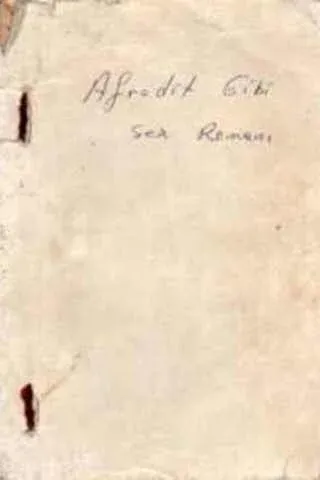 Afrodit Gibi
Sex Romanı